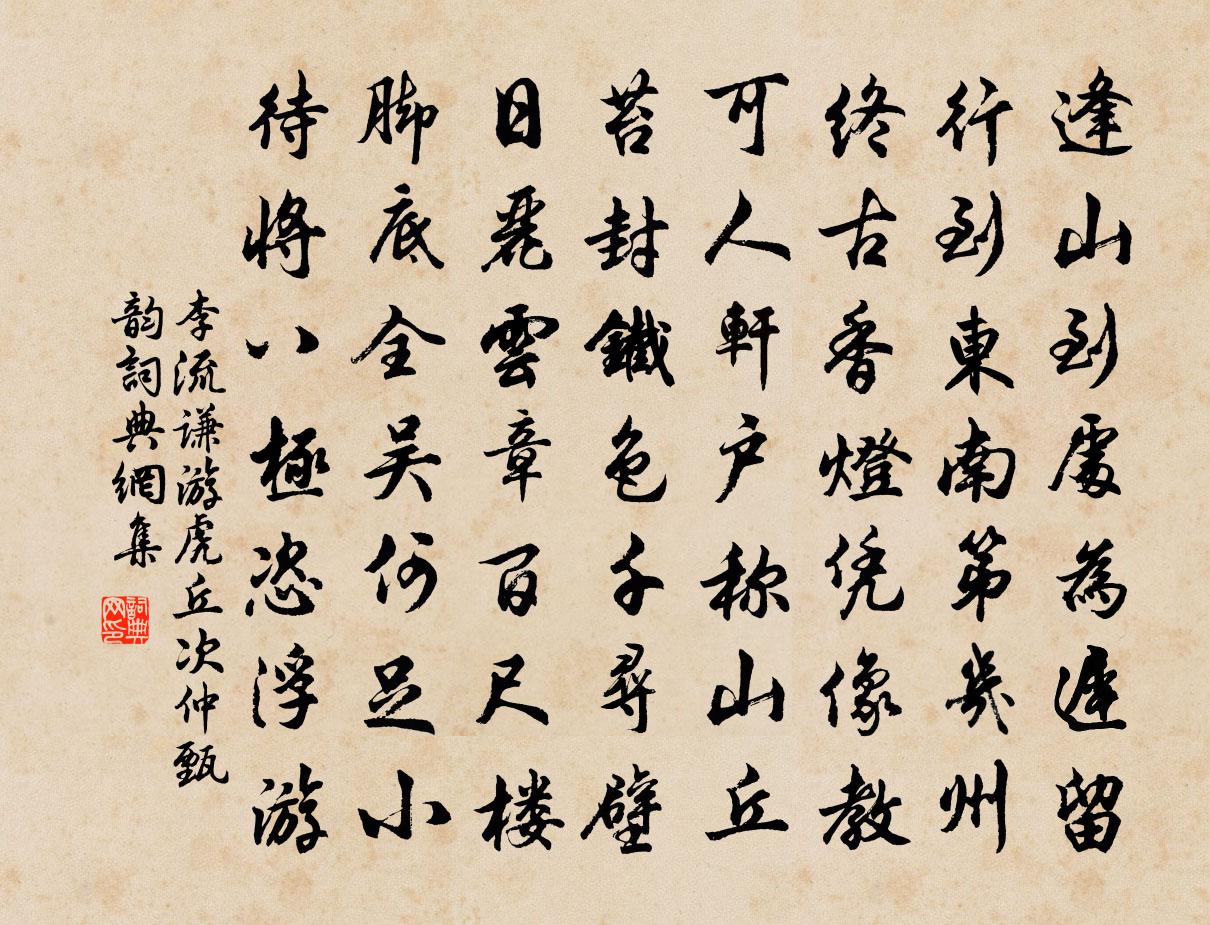 逢山到處為遲留
行到東南第幾州
終古香燈凭像教
可人軒户称山丘
苔封鐵色千尋壁
日麗雲章百尺楼
脚底全吴何足小
待将八極恣浮游
李流谦游虎丘次仲甄
韵詞典網集
詞典
网印